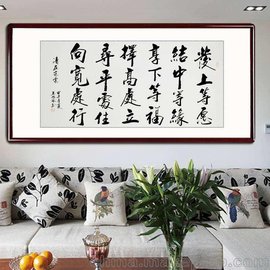 發上等愿
結中等緣
享下等福
擇高處立
尋平處住
向寬處行
清左宗棠